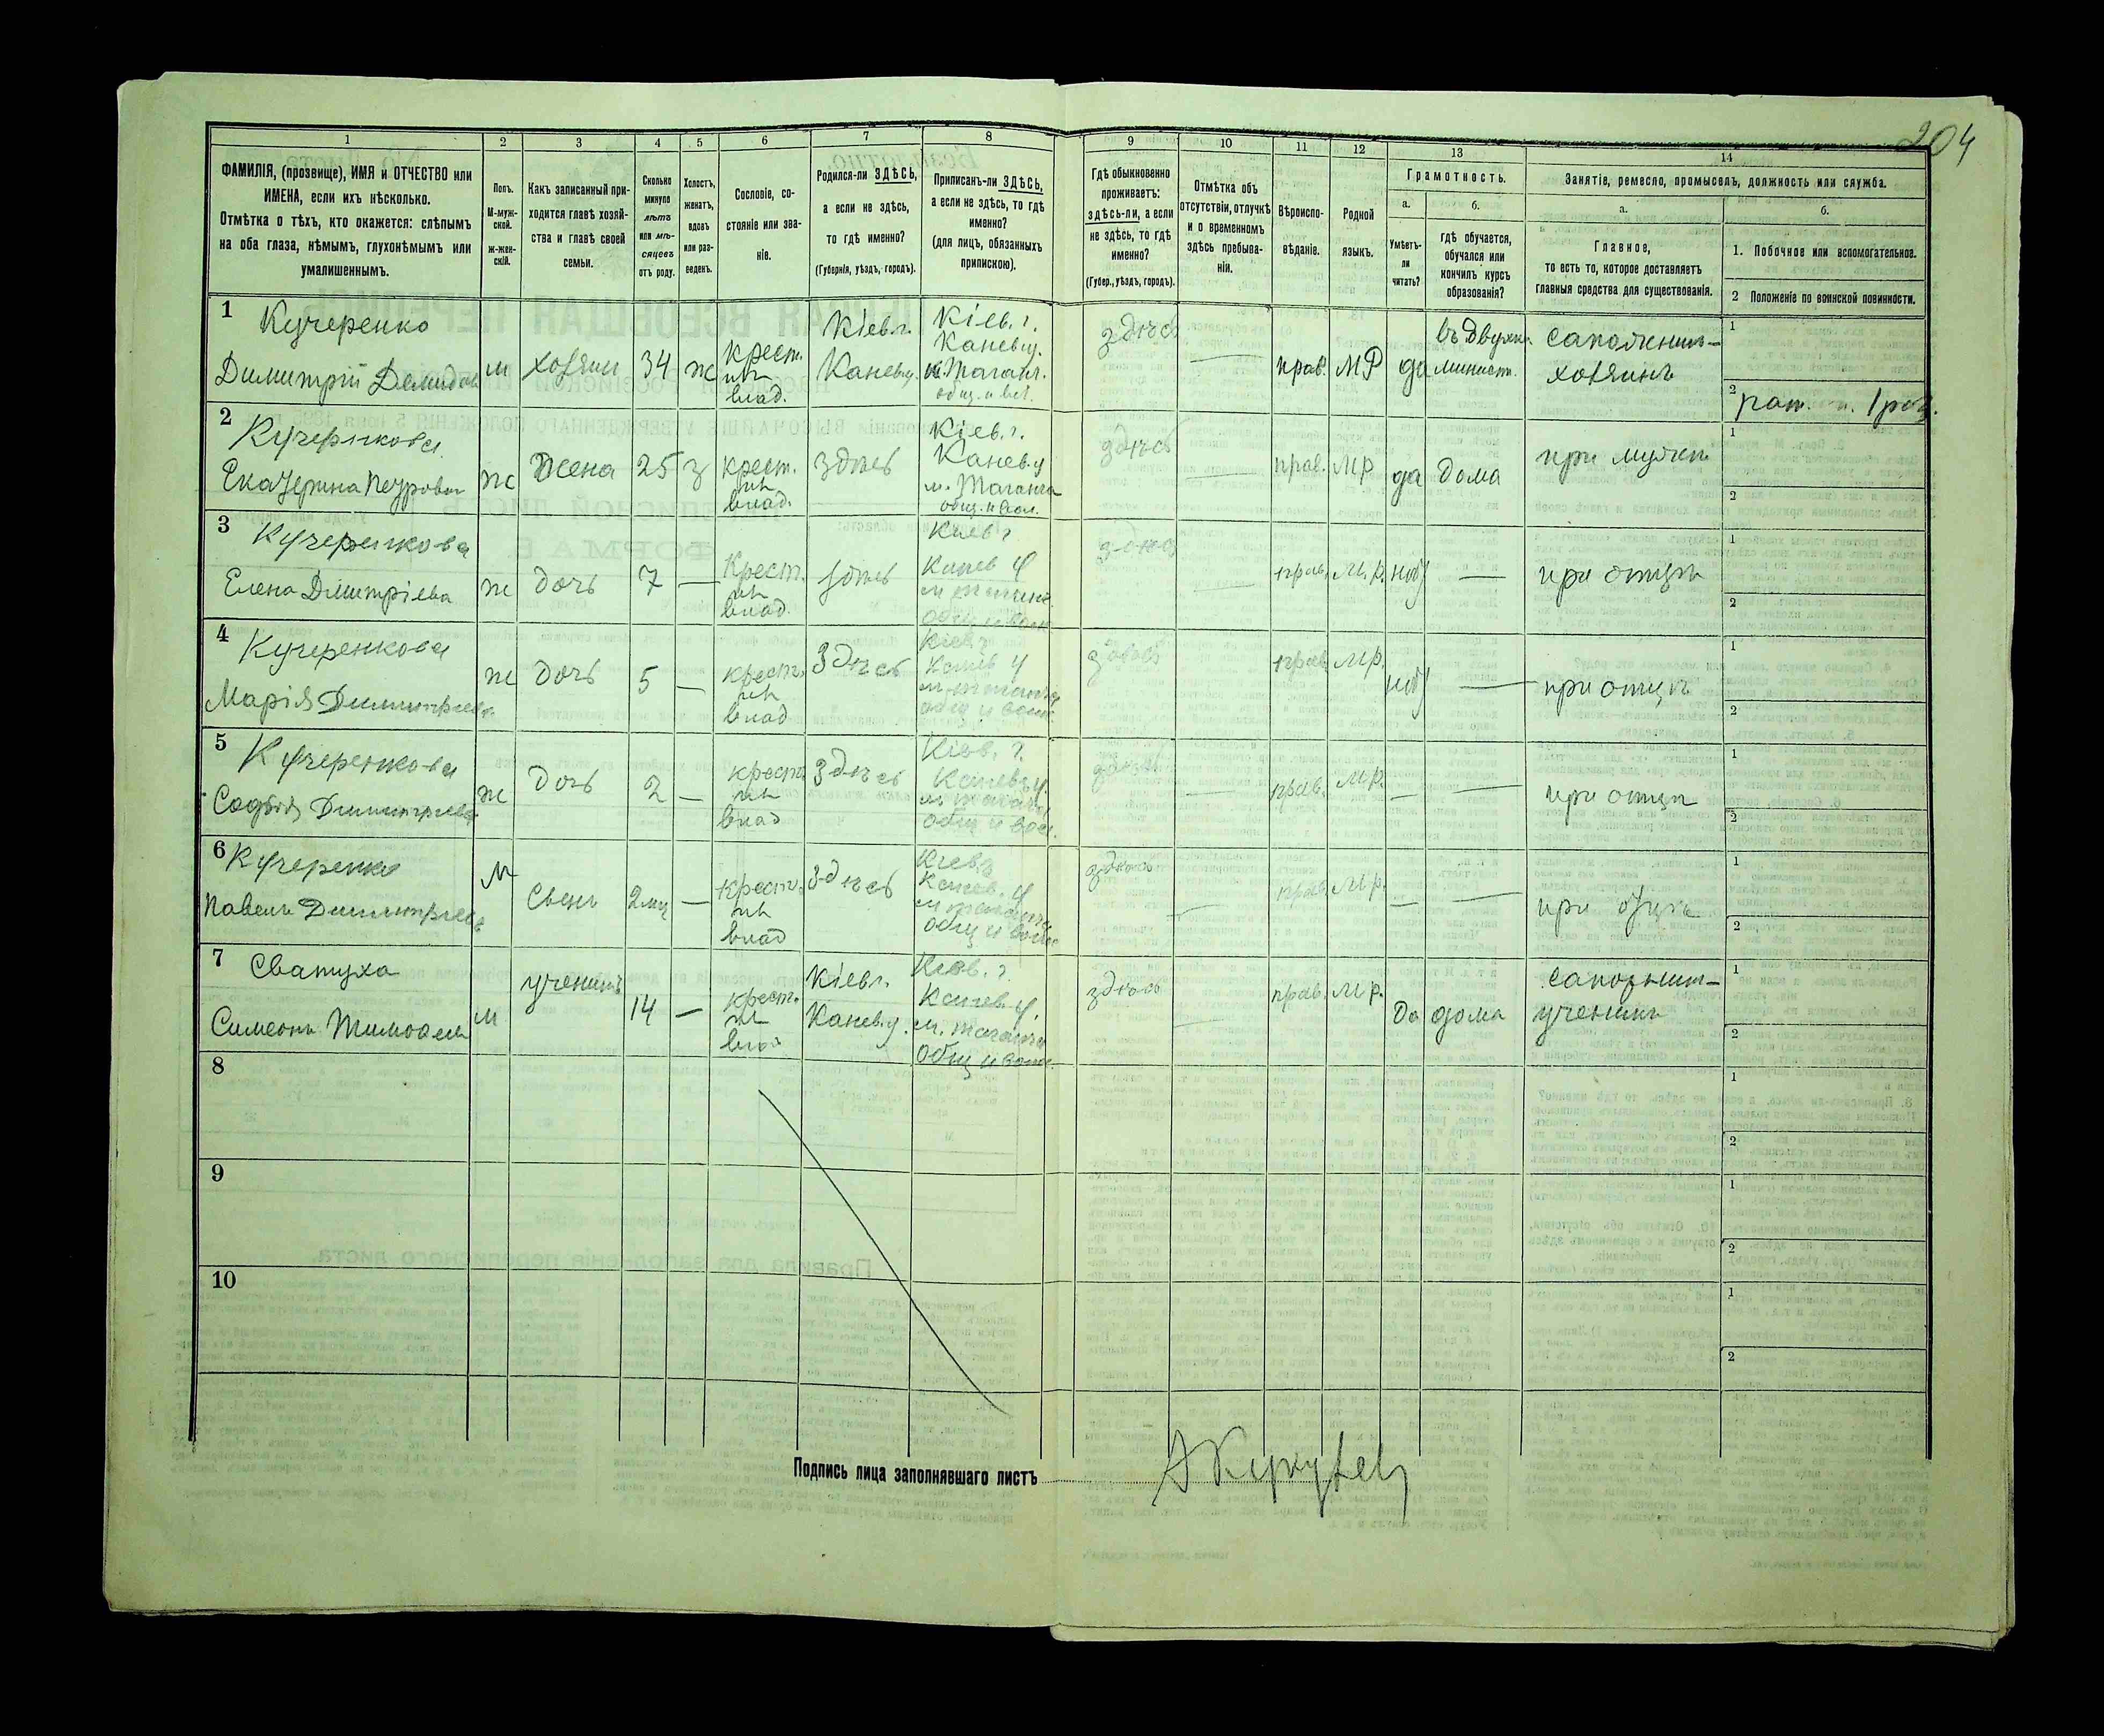 204
1
2
3
4
5
6
7
8
9
10
11
12
13
14
ФАМИЛІЯ, (прозвище), ИМЯ и ОТЧЕСТВО или
ИМЕНА, если ихъ нѣсколько.
Отмѣтка о тѣхъ, кто окажется: слѣпымъ
на оба глаза, нѣмымъ, глухонѣмымъ или
умалишеннымъ.
Полъ.
М-муж-
ской.
ж-жен-
скій.
Какъ записанный при-
ходится главѣ хозяй-
ства и главѣ своей
семьи.
Сколько
минуло
лѣтъ
или мѣ-
сяцевъ
отъ роду.
Холостъ,
женатъ,
вдовъ
или раз-
веденъ.
Сословіе, со-
стояніе или зва-
ніе.
Родился-ли ЗДѢСЬ,
а если не здѣсь,
то гдѣ именно?
(Губернія, уѣздъ, городъ).
Приписанъ-ли ЗДѢСЬ,
а если не здѣсь, то гдѣ
именно?
(для лицъ, обязанныхъ
припискою).
Гдѣ обыкновенно
проживаетъ:
здѣсь-ли, а если
не здѣсь, то гдѣ
именно?
(Губер., уѣздъ, городъ).
Отмѣтка объ
отсутствіи, отлучкѣ
и о временномъ
здѣсь пребыва-
ніи.
Вѣроиспо-
вѣданіе.
Родной
языкъ.
Грамотность.
а.
Умѣетъ-
ли
читать?
б.
гдѣ обучается,
обучался или
кончилъ курсъ
образованія?
Занятіе, ремесло, промыселъ, должность или служба.
а.
Главное,
то есть то, которое доставляетъ
главныя средства для существованія.
б.
1. Побочное или вспомогательное.
2 Положеніе по воинской повинности.
1
Кучеренко
Димитрій Демидов
м
хозяин
34
ж
крест.
влад.
Кіев г.
Канев у.
Кіев. г.
Канев у.
здѣсь
—
прав.
МР
да
въ Двухкл.
минист.
сапожник-
хозяинъ
1
2
2
Кучеренкова
Екатерина Петрова
ж
жена
25
з
крест.
влад.
здѣсь
Кіев. г.
Канев. у
м. Таганча
общ. и вол.
здѣсь
—
прав.
МР
да
дома
при мужѣ
1
2
3
Кучеренкова
Елена Димитріева
ж
дочь
7
—
Крест.
влад.
здѣсь
Киев г
Канев у
общ и вол
здѣсь
—
прав.
М.р.
—
при отцѣ
1
2
4
Кучеренкова
Марія Димитриев.
ж
дочь
5
—
крест.
влад
здѣсь
Киев г
Канев у
общ и вол
здѣсь
прав
М.р.
—
при отцѣ
1
2
5
Кучеренкова
Софія Димитриева
ж
дочь
2
—
крест.
влад
здѣсь
Кіев. г.
Канев у.
общ и вол.
здѣсь
—
прав.
М.р.
—
—
при отцѣ
1
2
6
Кучеренко
Павелъ Димитриев
м
Сынъ
2 мц
—
крест.
влад
здѣсь
Киев г
Канев. у
общ и вол
здѣсь
—
прав
М.р.
—
—
при отцѣ
1
2
7
Сватуха
Симеонъ Тимофеев
м
ученикъ
14
—
крест.
влад
Кіев г.
Канев у.
Кіев. г.
Канев. у.
м. Таганча
Общ и вол.
здѣсь
—
прав.
М.р.
да
дома
сапожник-
ученикъ
1
2
8
1
2
9
1
2
10
1
2
Подпись лица заполнявшаго листъ